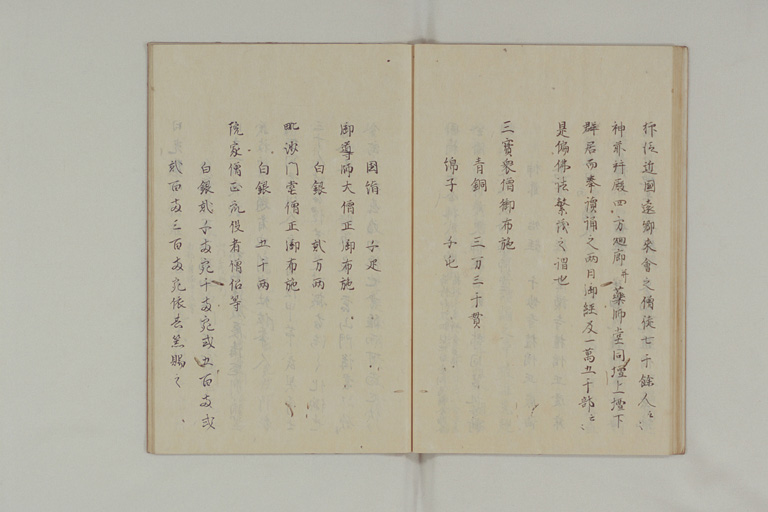 近國遠鄉來會之僧侶七千餘人
神前拜殿四方廻廊并藥師堂同壇上壇下
群居而奉讀誦之両日御經及一萬五千部
是偏佛法繁茂之謂也
三寶衆僧御布施
青銅 三万三千貫
綿子 千屯
団絹 千疋
御導師大僧正御布施
白銀 貳万両
毗沙門堂僧正御布施
白銀 五千両
院家僧正訖役者僧侶等
白銀貳千両宛千両宛或五百両或
貳百両三百両宛依差異賜之